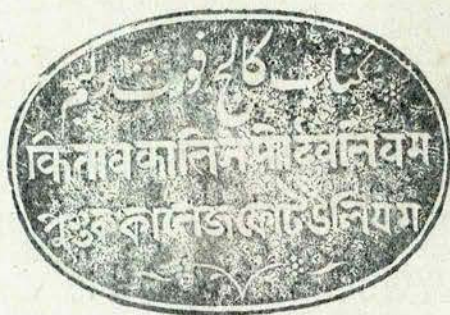 کتاب کالج فورت ولیم
किताव कालिज फोर्ट वलियम
পুস্তক কালেজ ফোর্ট উলিয়ম